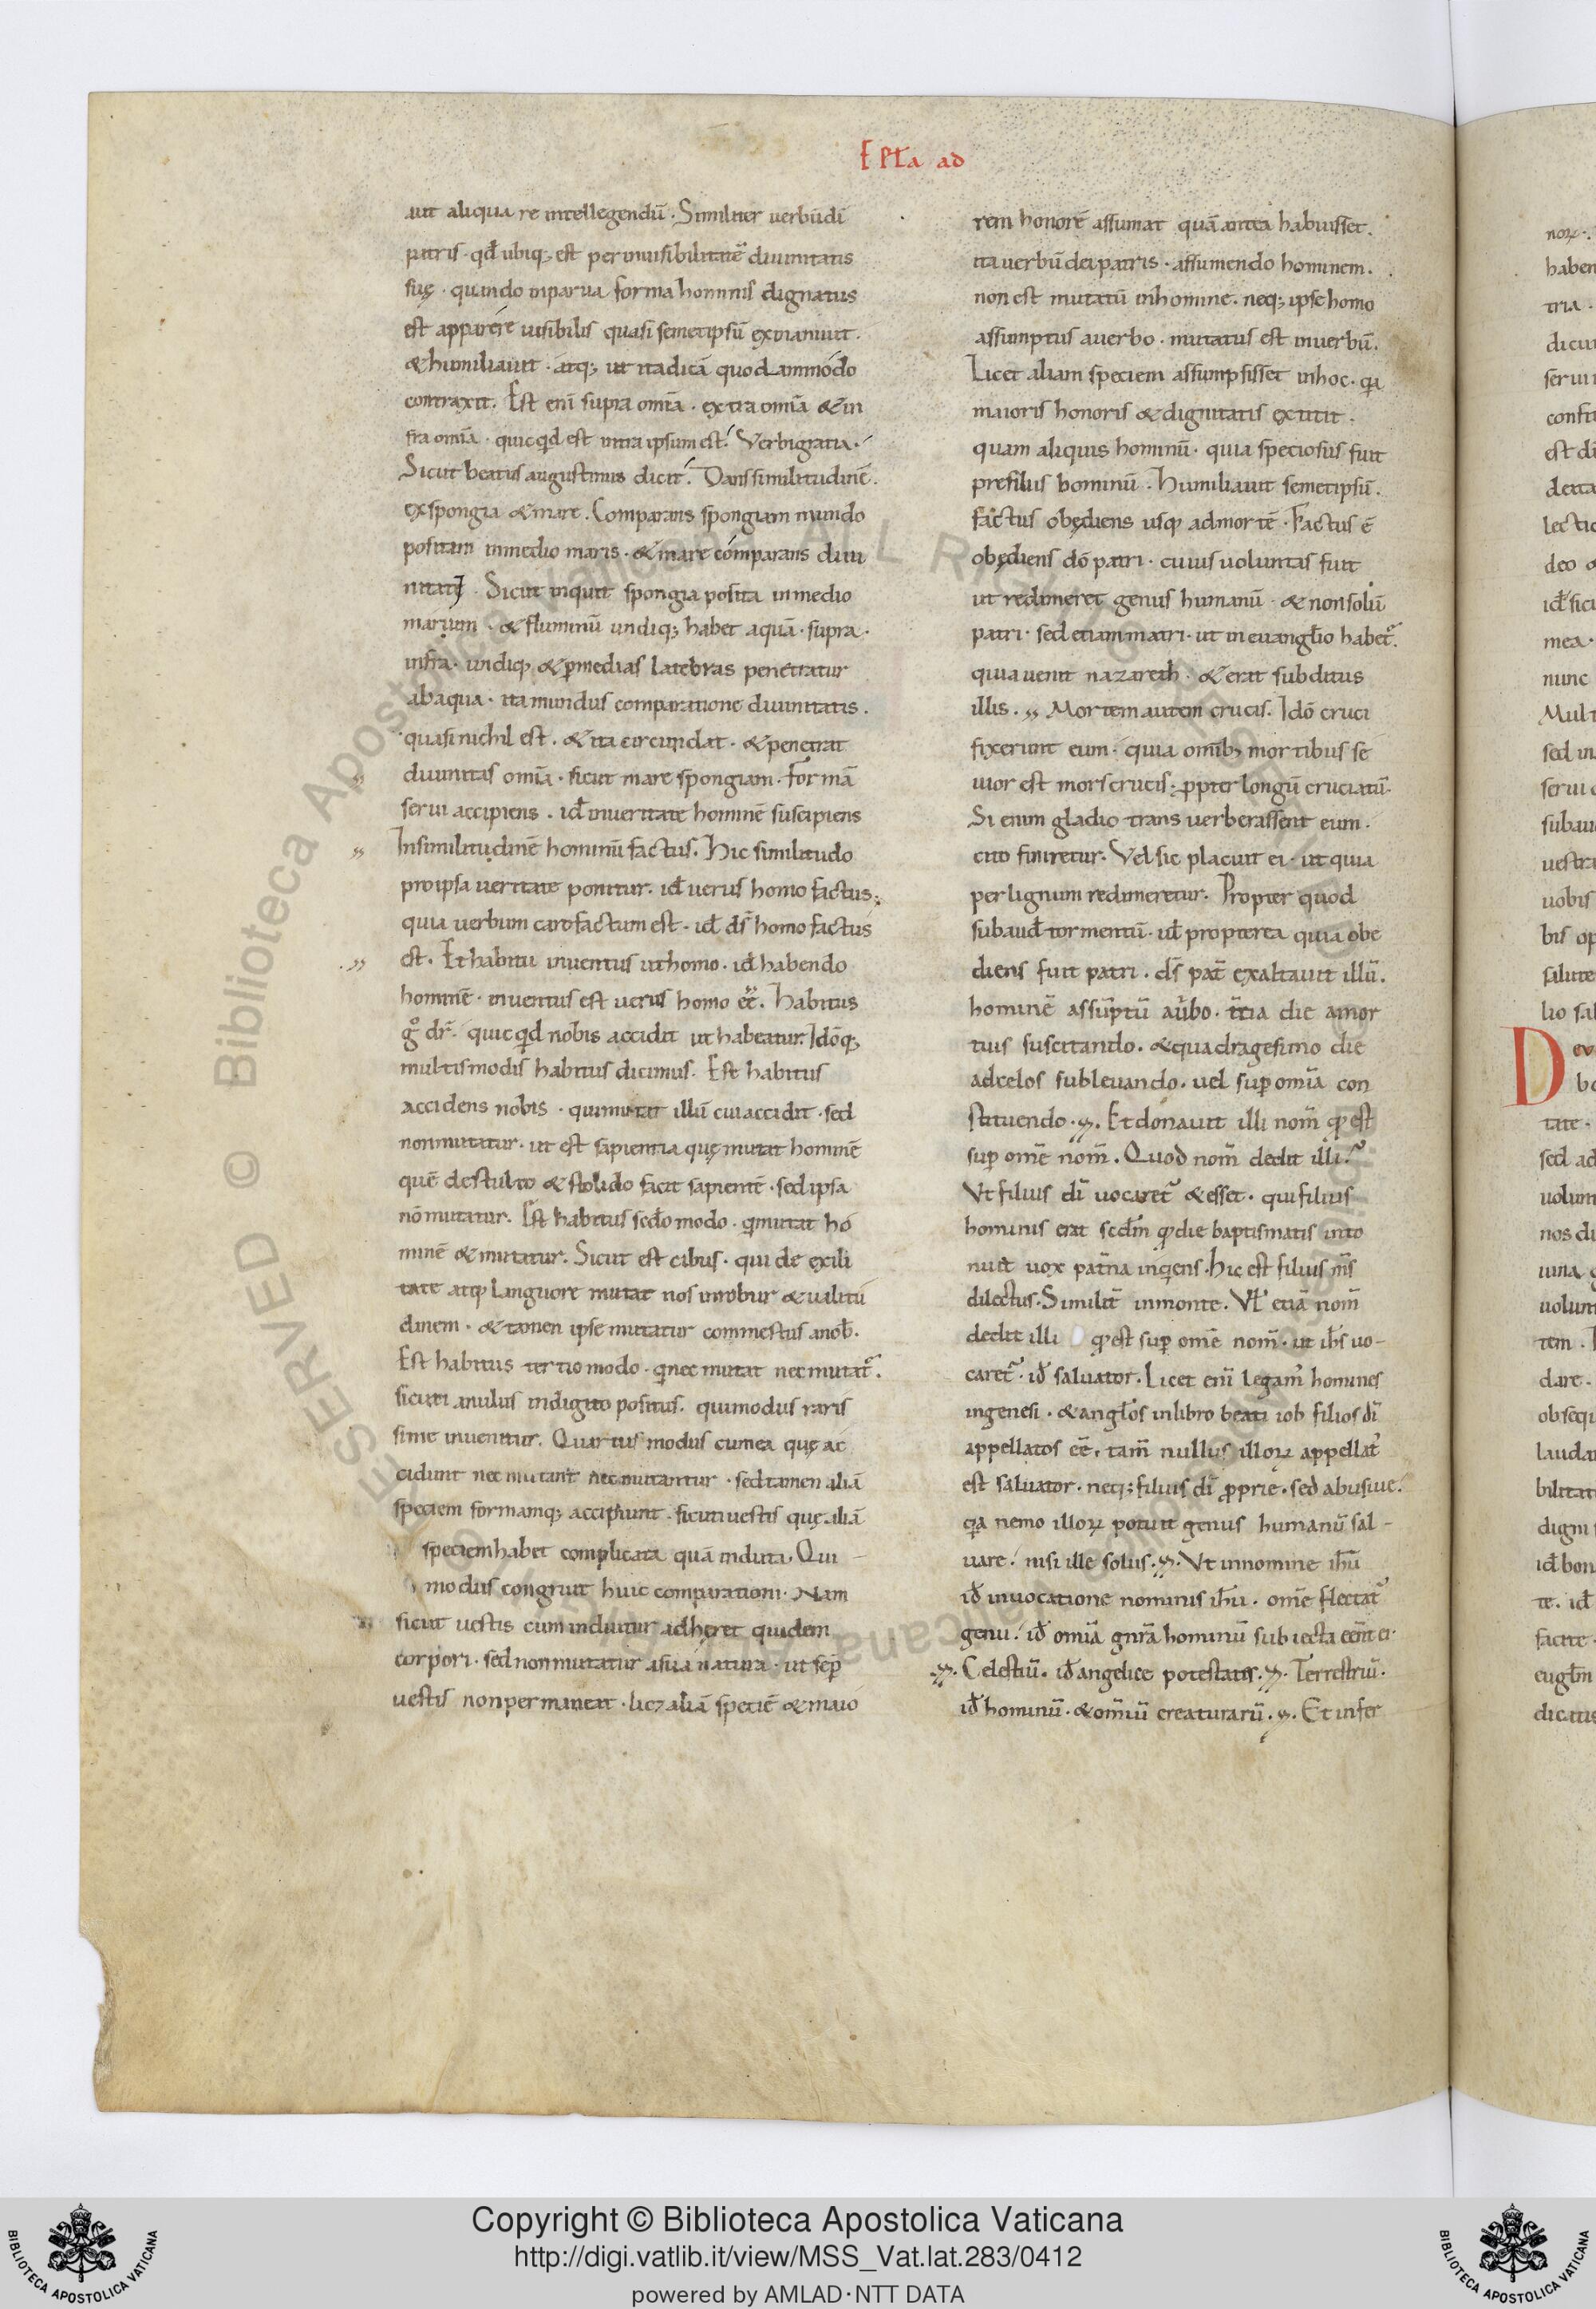 EPLa ad
aut aliqua re intellegendū · Similiter uerbū di
patris · qđ ubiq; est per inuisibilitatē diuinitatis
suę · quando in parua forma hominis dignatus
est apparere uisibilis quasi semetipsū exinaniuit ·
& humiliauit · atq; ut ita dicā quodammodo
contraxit. Est eni supra omīa · extra omīa & in
fra omīa · quicqđ est intra ipsum est. Verbi gratia ·
Sicut beatus augustinus dicit. Dans similitudinē ·
ex spongia & mare. Comparans spongiam mundo
positam in medio maris · & mare comparans diui
nitati · Sicut inquit spongia posita in medio
marium · & fluminū undiq; habet aquā · supra ·
infra · undiq; & p medias latebras penetratur
ab aqua · ita mundus comparatione diuinitatis ·
quasi nichil est · & ita circundat · & penetrat
diuinitas omīa · sicut mare spongiam · Formā
serui accipiens · iđ in ueritate hominē suscipiens
In similitudinē hominū factus. Hic similitudo
pro ipsa ueritate ponitur · iđ uerus homo factus;
quia uerbum caro factum est · iđ ds homo factus
est. Et habitu inuentus ut homo · iđ habendo
hominē · inuentus est uerus homo eē. Habitus
g° dr · quicqđ nobis accidit ut habeatur. Idōq;
multis modis habitus dicimus. Est habitus
accidens nobis · qui mutat illū cui accidit · sed
non mutatur · ut est sapientia quę mutat hominē
quē de stulto & stolido facit sapientē · sed ipsa
nō mutatur. Est habitus sedo modo · q mutat ho
minē & mutatur. Sicut est cibus · qui de exili
tate atq; languore mutat nos in robur & ualitu
dinem · & tamen ipse mutatur commestus a nob.
Est habitus tertio modo · q nec mutat nec mutat.
sicuti anulus in digito positus · qui modus raris
sime inuenitur. Quartus modus cum ea quę ac
cidunt nec mutant nec mutantur · sed tamen aliā
speciem formamq; accipiunt · sicuti uestis quę aliā
speciem habet complicata quā induta · Qui
modus congruit huic comparationi · Nam
sicut uestis cum induitur adheret quidem
corpori · sed non mutatur a sua natura · ut sep
uestis non permaneat · licz aliā speciē & maio
rem honorē assumat quā antea habuisset.
ita uerbū dei patris · assumendo hominem ·
non est mutatū in homine · neq; ipse homo
assumptus a uerbo · mutatus est in uerbū.
Licet aliam speciem assumpsisset in hoc · qa
maioris honoris & dignitatis extitit ·
quam aliquis hominū · quia speciosus fuit
pre filiis hominū · Humiliauit semetipsū.
factus obediens usq; ad mortē · Factus ē
obediens dō patri · cuius uoluntas fuit
ut redimeret genus humanū · & non solū
patri · sed etiam matri · ut in euanglio habet.
quia uenit nazareth · & erat subditus
illis. Mortem autem crucis. Idō cruci
fixerunt eum · quia omib; mortibus se
uior est mors crucis · ppter longū cruciatū·
Si enim gladio transuerberassent eum ·
cito finiretur. Vel sic placuit ei · ut quia
per lignum redimeretur. Propter quod
subaud tormentū · iđ propterea quia obe
diens fuit patri · ds pat exaltauit illū.
hominē assūptū a ubo · tcia die a mor
tuis suscitando · & quadragesimo die
ad celos subleuando · uel sup omīa con
stituendo · Et donauit illi nom qđ est
sup omē nom. Quod nom dedit illi?
Vt filius di uocaret & esset · qui filius
hominis erat scdm qđ die baptismatis into
nuit uox patna inqiens · Hic est filius ms
dilectus · Similit in monte. Vl etiā nom
dedit illi qđ est sup omē nom · ut ihs uo-
caret · iđ saluator. Licet eni legam homines
in genesi · & anglos in libro beati iob filios di
appellatos eē, tam nullus illoꝝ appellat
est saluator · neq; filius di pprie · sed abusiue.
qa nemo illoꝝ potuit genus humanū sal-
uare · nisi ille solus · Vt in nomine ihu
iđ inuocatione nominis ihu · omē flectat
genu · iđ omīa gnra hominū subiecta eent ei·
Celestiū · iđ angelice potestates · Terrestriū·
iđ hominū · & omiū creaturarū · Et infer
Copyright © Biblioteca Apostolica Vaticana
http://digi.vatlib.it/view/MSS_Vat.lat.283/0412
powered by AMLAD·NTT DATA
BIBLIOTECA APOSTOLICA VATICANA
BIBLIOTECA APOSTOLICA VATICANA